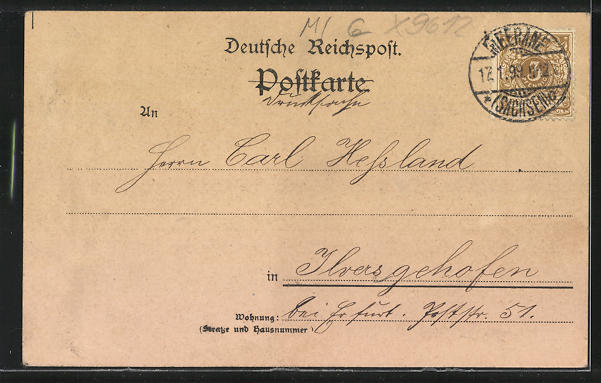 M/ G X9612
Deutsche Reichspost.
Postkarte
Drucksache
MEERANE
17.1.99.
* (SACHSEN) *
An
Herrn Carl Hessland
in Ilversgehofen
Wohnung: bei Erfurt. Poststr. 51.
(Straße und Hausnummer)